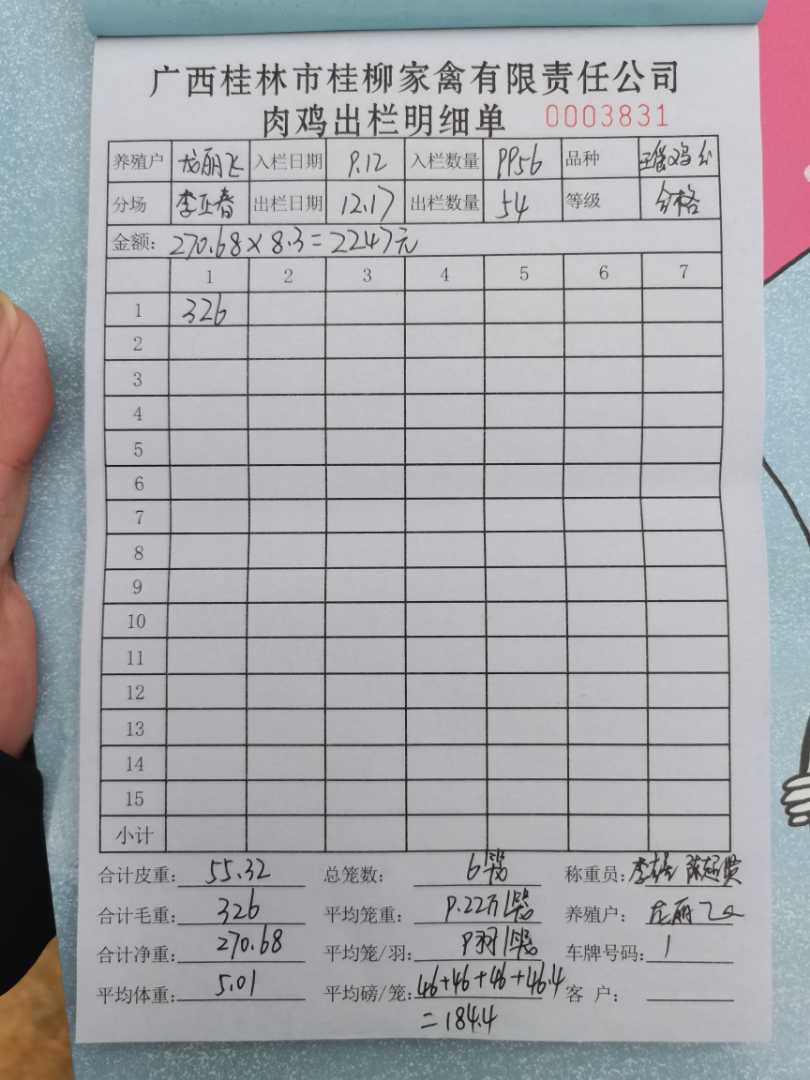 广西桂林市桂柳家禽有限责任公司
肉鸡出栏明细单 0003831
养殖户 龙丽飞 入栏日期 9.12 入栏数量 9956 品种
分场 李正春 出栏日期 12.17 出栏数量 54 等级 合格
金额: 270.68×8.3=2247元
1 2 3 4 5 6 7
1 326
2
3
4
5
6
7
8
9
10
11
12
13
14
15
小计
合计皮重: 55.32 总笼数: 6 称重员:
合计毛重: 326 平均笼重: 9.22斤/ 养殖户: 龙丽飞
合计净重: 270.68 平均笼/羽: 9羽/ 车牌号码: 1
平均体重: 5.01 平均磅/笼: 46+46+46+46.4 客 户:
=184.4